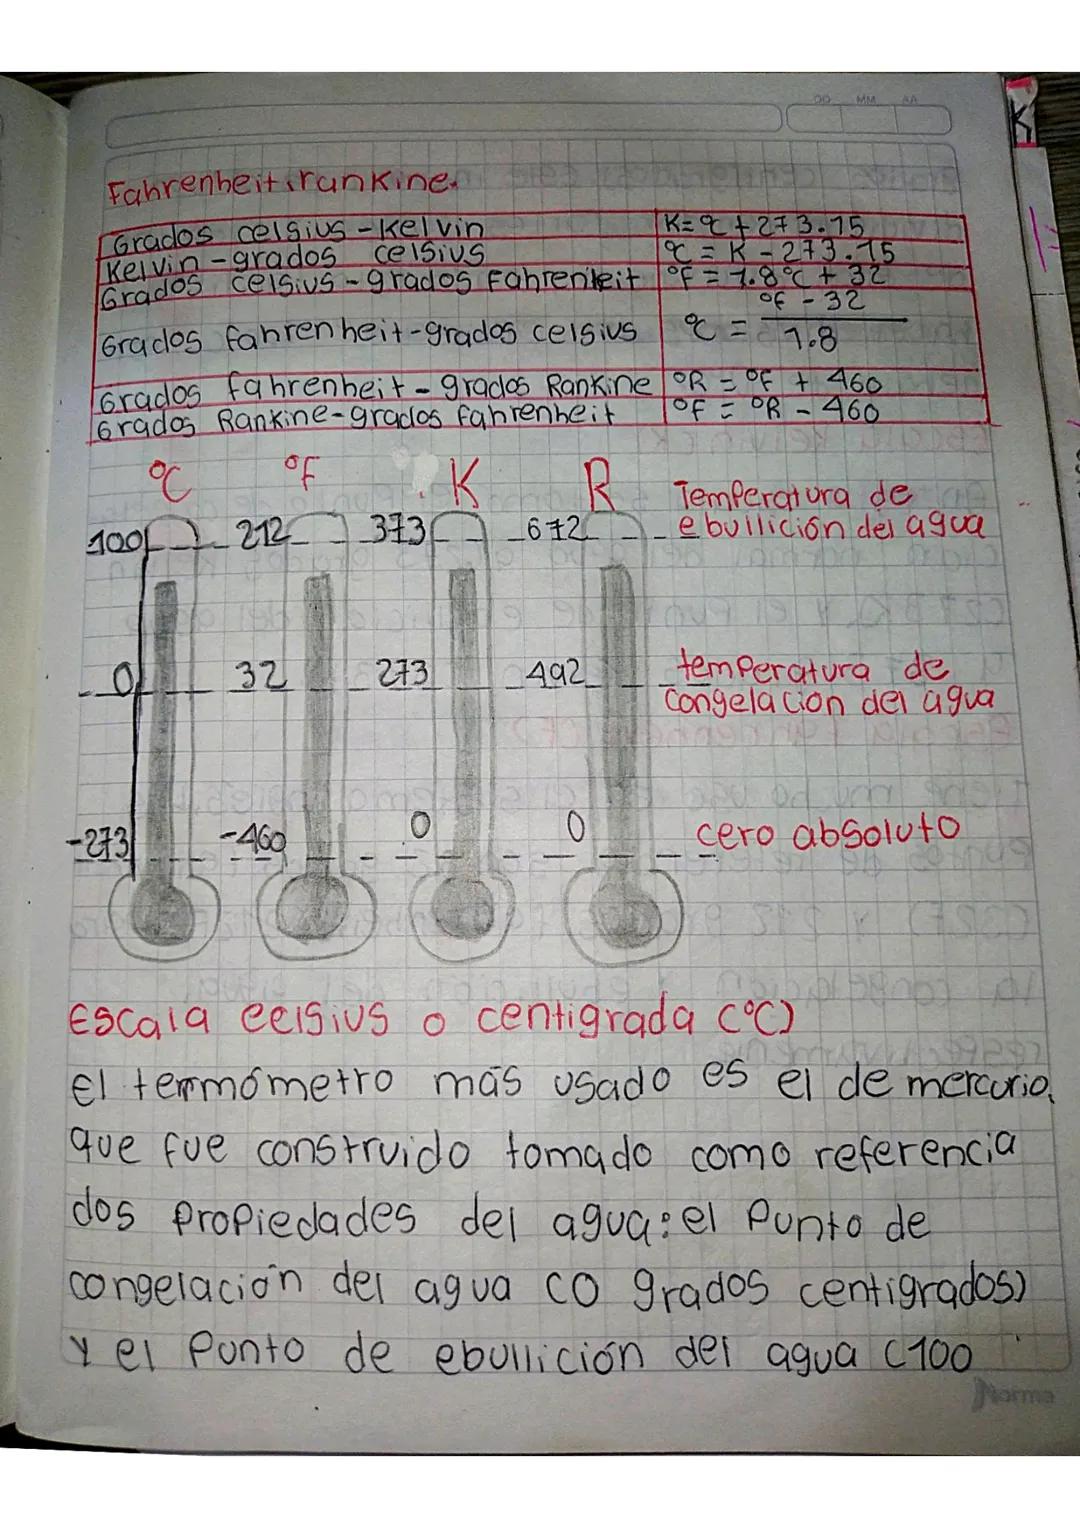 DD MM AA
K
Fahrenheit, rankine.
Grados celsius - Kelvin K = °C + 273.15
Kelvin - grados celsius °C = K - 273.15
Grados celsius - grados Fahrenheit °F = 1.8°C + 32
Grados fahrenheit - grados celsius °C = °F - 32 / 1.8
Grados fahrenheit - grados Rankine °R = °F + 460
Grados Rankine - grados fahrenheit °F = °R - 460
°C °F K R
Temperatura de
100 212 373 672 ebullición del agua
0 32 273 492 temperatura de
congelacion del agua
-273 -460 0 0 cero absoluto
Escala celsius o centigrada (°C)
El termómetro más usado es el de mercurio,
que fue construido tomado como referencia
dos propiedades del agua: el punto de
congelación del agua (0 grados centigrados)
y el punto de ebullición del agua (100
Norma